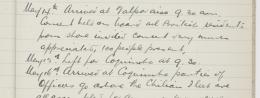 May 14th Arrived at Valparaiso 9.30 am.
Concert held on board at British residents
from shore invited concert very much
appreciated, 100 people present,
May 15th Left for Coquimbo at 9.30
May 16th Arrived at Coquimbo parties of
Officers go ashore the Chilian Fleet are